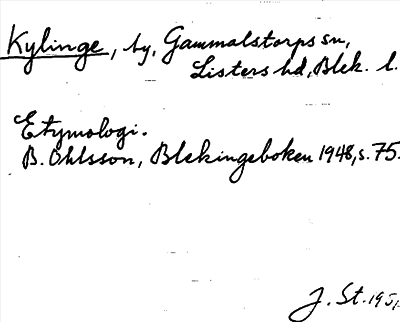 Kylinge, by, Gammalstorps sn,
Listers hd, Blek. l.
Etymologi.
B. Ohlsson, Blekingeboken 1948, s. 75.
J. St. 195